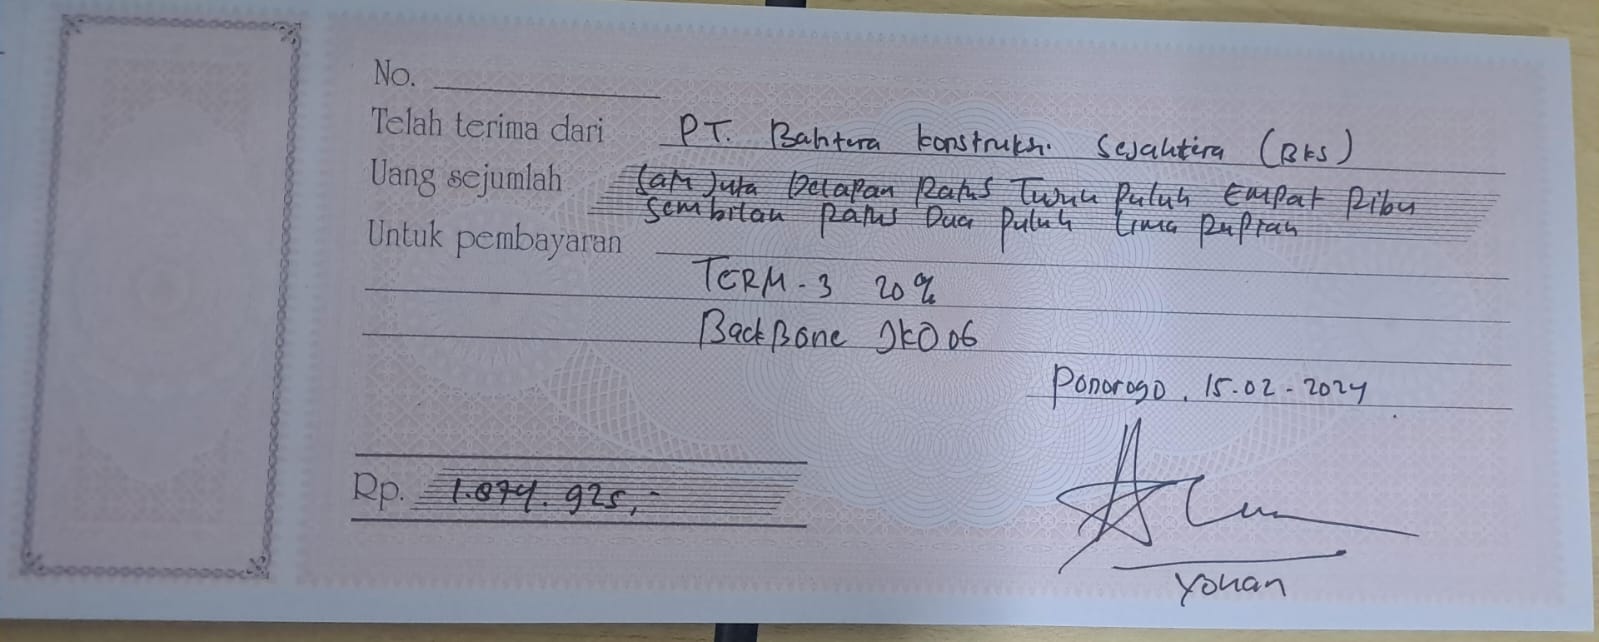 No.
Telah terima dari PT. Bahtera konstruksi Sejahtera (BKS)
Uang sejumlah Satu Juta Delapan Ratus Tujuh Puluh Empat Ribu
Sembilan Ratus Dua Puluh Lima Rupiah
Untuk pembayaran
TERM - 3 20%
BackBone JKO 06
Ponorogo, 15-02-2024
Rp. 1.874.925,-
Yohan